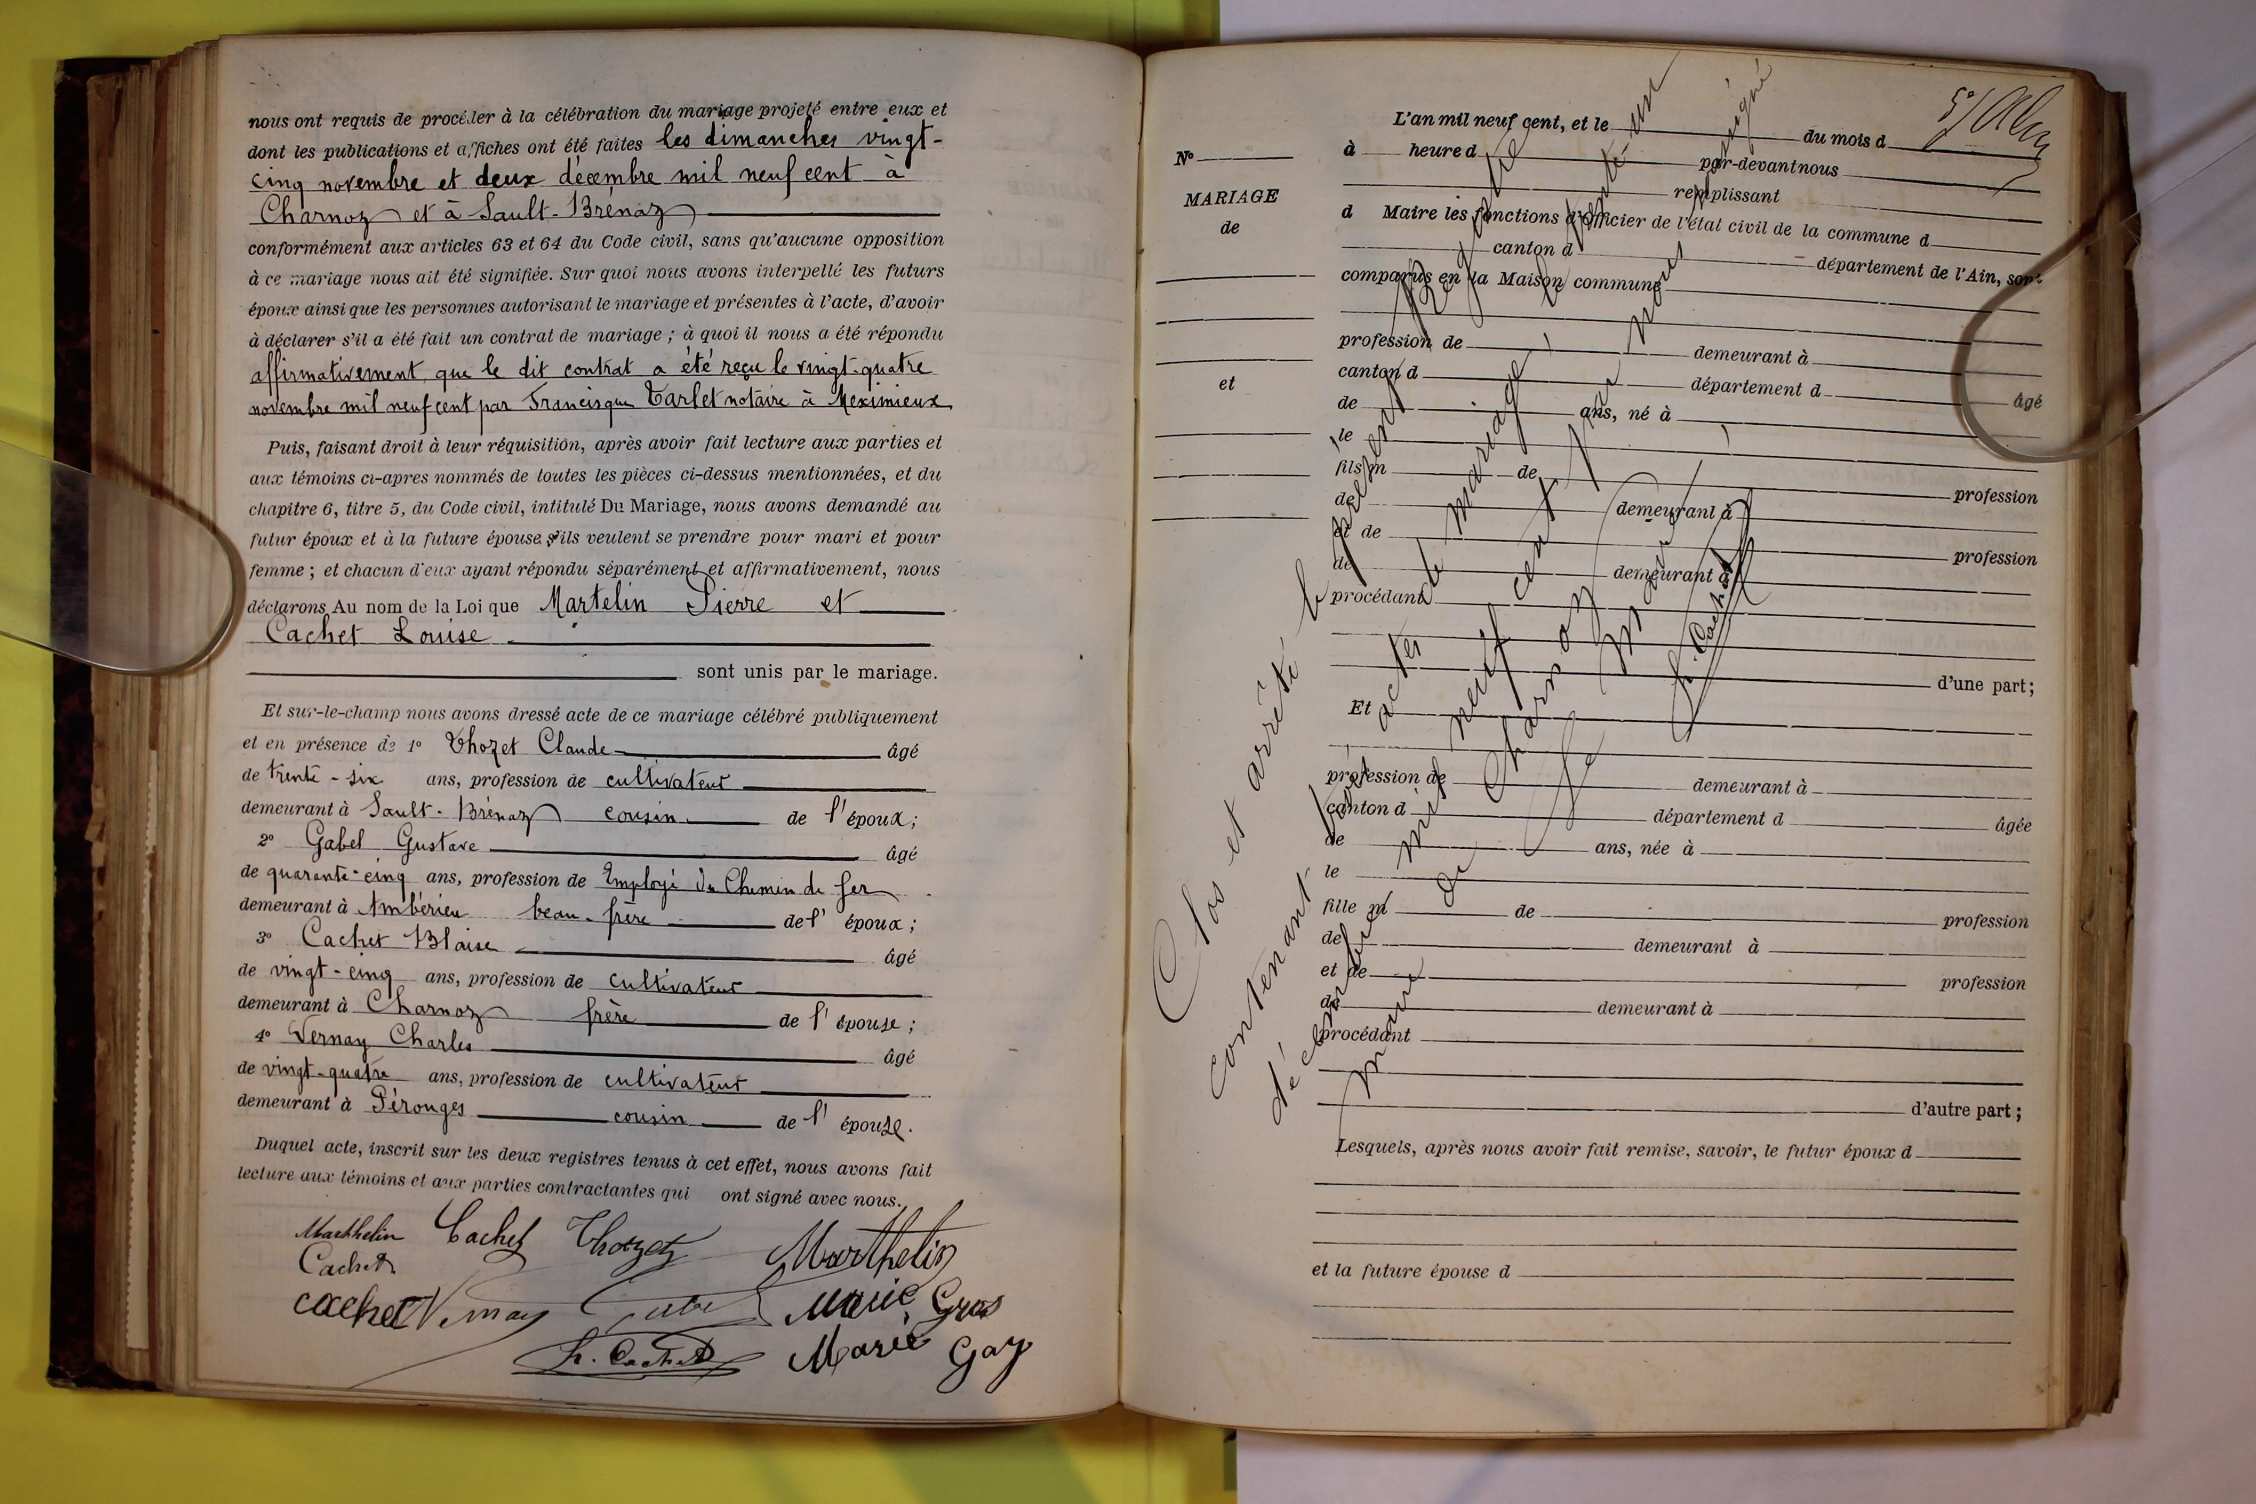 nous ont requis de procéder à la célébration du mariage projeté entre eux et
dont les publications et affiches ont été faites les dimanches vingt-
cinq novembre et deux décembre mil neuf cent à
Charnoz et à Sault-Brénaz
conformément aux articles 63 et 64 du Code civil, sans qu'aucune opposition
à ce mariage nous ait été signifiée. Sur quoi nous avons interpellé les futurs
époux ainsi que les personnes autorisant le mariage et présentes à l'acte, d'avoir
à déclarer s'il a été fait un contrat de mariage ; à quoi il nous a été répondu
affirmativement que le dit contrat a été reçu le vingt-quatre
novembre mil neuf cent par Francisque Tarlet notaire à Meximieux
Puis, faisant droit à leur réquisition, après avoir fait lecture aux parties et
aux témoins ci-apres nommés de toutes les pièces ci-dessus mentionnées, et du
chapitre 6, titre 5, du Code civil, intitulé Du Mariage, nous avons demandé au
futur époux et à la future épouse s'ils veulent se prendre pour mari et pour
femme ; et chacun d'eux ayant répondu séparément et affirmativement, nous
déclarons Au nom de la Loi que Martelin Pierre et
Cachet Louise
sont unis par le mariage.
Et sur-le-champ nous avons dressé acte de ce mariage célébré publiquement
et en présence de 1° Thozet Claude âgé
de trente-six ans, profession de cultivateur
demeurant à Sault-Brénaz cousin de l'époux ;
2° Gabel Gustave âgé
de quarante-cinq ans, profession de Employé du Chemin de fer
demeurant à Ambérieu beau-frère de l'époux ;
3° Cachet Blaise âgé
de vingt-cinq ans, profession de cultivateur
demeurant à Charnoz frère de l'épouse ;
4° Vernay Charles âgé
de vingt-quatre ans, profession de cultivateur
demeurant à Pérouges cousin de l'épouse.
Duquel acte, inscrit sur les deux registres tenus à cet effet, nous avons fait
lecture aux témoins et aux parties contractantes qui ont signé avec nous.
Marthelin Cachet Thozet Marthelin
Cachet
cachet Vernay Marie Gros
Cachet Marie Gay
N°
MARIAGE
de
et
L'an mil neuf cent, et le du mois d
à heure d par-devant nous
remplissant
d Maire les fonctions d'Officier de l'état civil de la commune d
canton d département de l'Ain, sont
comparus en la Maison commune
profession de demeurant à
canton d département d âgé
de ans, né à
le
fils m de profession
de demeurant à
et de profession
de demeurant à
procédant
d'une part ;
Et
profession de demeurant à
canton d département d âgée
de ans, née à
le
fille m de profession
de demeurant à
et de profession
de demeurant à
procédant
d'autre part ;
Lesquels, après nous avoir fait remise, savoir, le futur époux d
et la future épouse d
Clos et arrêté le présent Registre
contenant actes de mariage, le trente-un
décembre mil neuf cent par nous soussigné
maire de Charnoz
Le Maire
Cachet